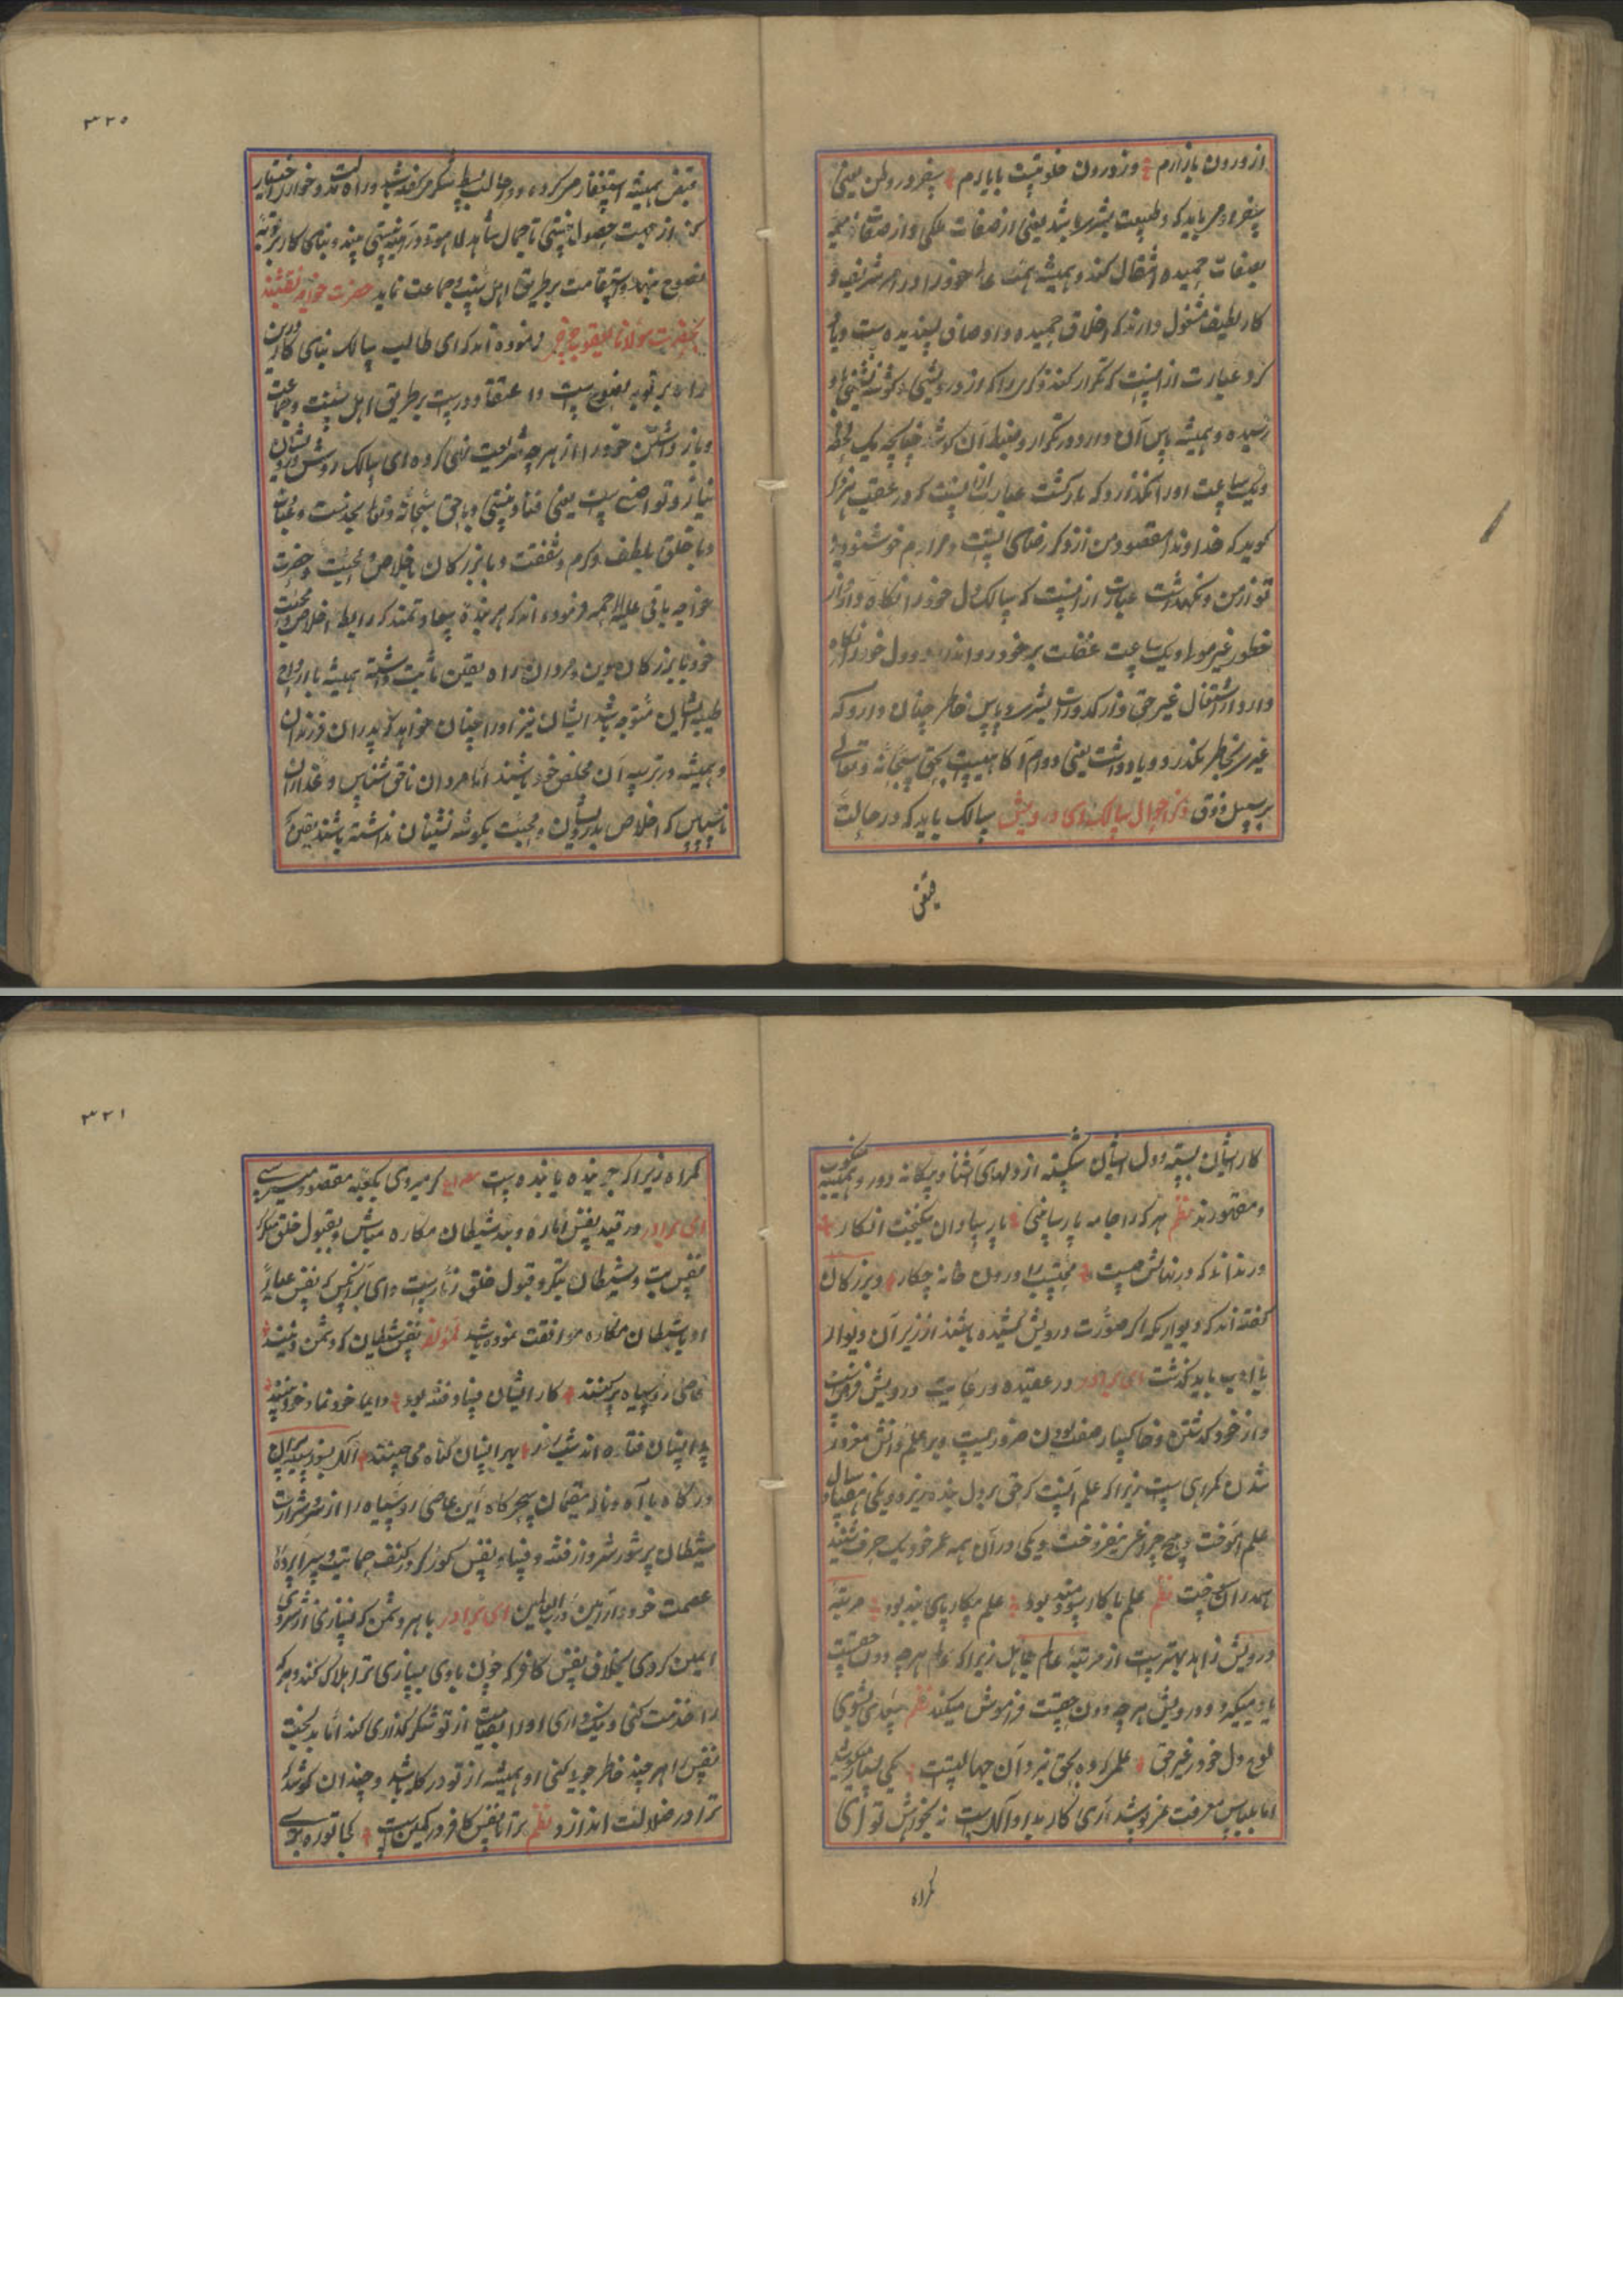 از درون بازارم وز درون خلوتیست بایارم سفر در وطن یعنی
بصفات حمیده انتقال کند و همیشه همت
کار لطیف مشغول دارند که اخلاق حمیده و اوصاف پسندیده است و یاد
کرد عبارت از اینست که تکرار کند ذکری را که از درویشی و گوشه نشینی باو
رسیده و همیشه پاس آن دارد و در تکرار و ضبط آن کوشد چنانچه یک لحظه
و یک ساعت او را نگذرد و بازگشت عبارت از آنست که در عقب هر ذکر
گوید که خداوندا مقصود من از ذکر رضای تست و مرادم خوشنودی
تو از من و نگهداشت عبارت از اینست که سالک دل خود را نگاه دارد از
خطور غیر مولا و یک ساعت غفلت بر خود روا ندارد و دل خود را نگاه
دارد از اشتغال غیر حق و از کدورات بشری و پاس خاطر چنان دارد که
غیری بخاطر نگذرد و یادداشت یعنی دوام آگاهیست بحق سبحانه و تعالی
بر سبیل ذوق ذکر احوال سالک وی درویش سالک باید که در حالت
قبض
۳۲۰
قبض همیشه استغفار می‌کرده و در حالت بسط شکر می‌گفته باشد و راه
کند از جهت حصول نیستی تا جمال شاهد لاهوت در آینه نیستی بیند و بنای کار بر توبه
نصوح بنهد و استقامت بر طریق اهل سنت و جماعت نماید حضرت خواجه نقشبند
بحضرت مولانا یعقوب چرخی فرموده اند که ای طالب سالک بنای کار درین
راه بر توبه نصوح است و اعتقاد درست بر طریق اهل سنت و جماعت
و باز داشتن خود را از هر چه شریعت نهی کرده ای سالک روش درویشان
نیاز و تواضع است یعنی فنا و نیستی و با حق سبحانه و تعالی
و با خلق بلطف و کرم و شفقت و با بزرگان باخلاص و محبت و حضرت
خواجه باقی علیه الرحمه فرموده اند که هر بنده سعادتمند که رابطه اخلاص و محبت
خود با بزرگان دین و مردان راه یقین ثابت داشته همیشه بارواح
طیبه ایشان متوجه باشد ایشان نیز او را چنان خواهند که پدران فرزندان
و همیشه در تربیه آن مخلص خود باشند اما مردان ناحق شناس و غداران
ناسپاس که اخلاص بدرویشان و محبت بگوشه نشینان نداشته باشند یقین که
کار ایشان بسته و دل ایشان شکسته از دلهای آشنا و بیگانه دور و همیشه منکوب
و مقهورند نظم هر که را جامه پارسا بینی پارسا دان و نیکبخت انگار
ور ندانی که در نهانش چیست محتسب را درون خانه چکار و بزرگان
گفته اند که دیواریکه اگر صورت درویش کشیده باشند از زیر آن دیوار
با ادب باید گذشت ای برادر در عقیده و رعایت درویش فرض است
و از خود گذشتن و خاکسار صفت بودن ضرور است و بر علم و دانش مغرور
شدن گمراهی است زیرا که علم آنست که حق بر دل بنده ریزد و یکی هفتاد سال
علم آموخت و هیچ چراغی نیفروخت و یکی در آن همه عمر خود یک حرف شنید
همه را بسوخت نظم علم با کار سودمند بود علم بیکار پای بند بود مرتبه
درویش زاهد بهتر است از مرتبه عالم جاهل زیرا که عالم هر چه دون حقست
یاد میگیرد و درویش هر چه دون حقست فراموش میکند نظم سعدی بشوی
لوح دل خود ز غیر حق علمی که ره بحق ننماید آن جهالتست یکی بسیار میکوشد
اما لباس معرفت نپوشد آری کار بداد آلهست نه بخواهش تو ای
گمراه
۳۲۱
گمراه زیرا که جوینده یابنده است مصراع گر میروی بکعبه مقصود میرسی
ای برادر در قید نفس اماره و بند شیطان مکاره مباش و بقبول خلق منگر
نفس بت و شیطان بتگر و قبول خلق زنار است وای بر آنکس که نفس عیاره
او با شیطان مکاره موافقت نموده باشد لمؤلفه نفس و شیطان که دشمن دینند
عاصی روسیاه پر کینند کار ایشان فساد و فتنه بود دایما خود نما و خود بینند
آلهی بسوز سینه پیران
درگاه با آه و ناله مقیمان سحرگاه این عاصی روسیاه را از شر و شرارت
شیطان پر شور و شر و از فتنه و فساد نفس کور و کر در کنف حمایت و سراپرده
عصمت خود دار آمین رب العالمین ای برادر با هر دشمن که بسازی از شر وی
ایمن گردی بخلاف نفس کافر که چون با وی بسازی ترا هلاک کند و هر که
را خدمت کنی و نیکو داری او را بقیامت از تو شکر گذاری کند اما بدبخت
نفس را هر چند خاطر جویی کنی او همیشه از تو در گله باشد و چندان کوشد که
ترا در ضلالت اندازد نظم ترا تا نفس کافر در کمین است کجا تو ره بری